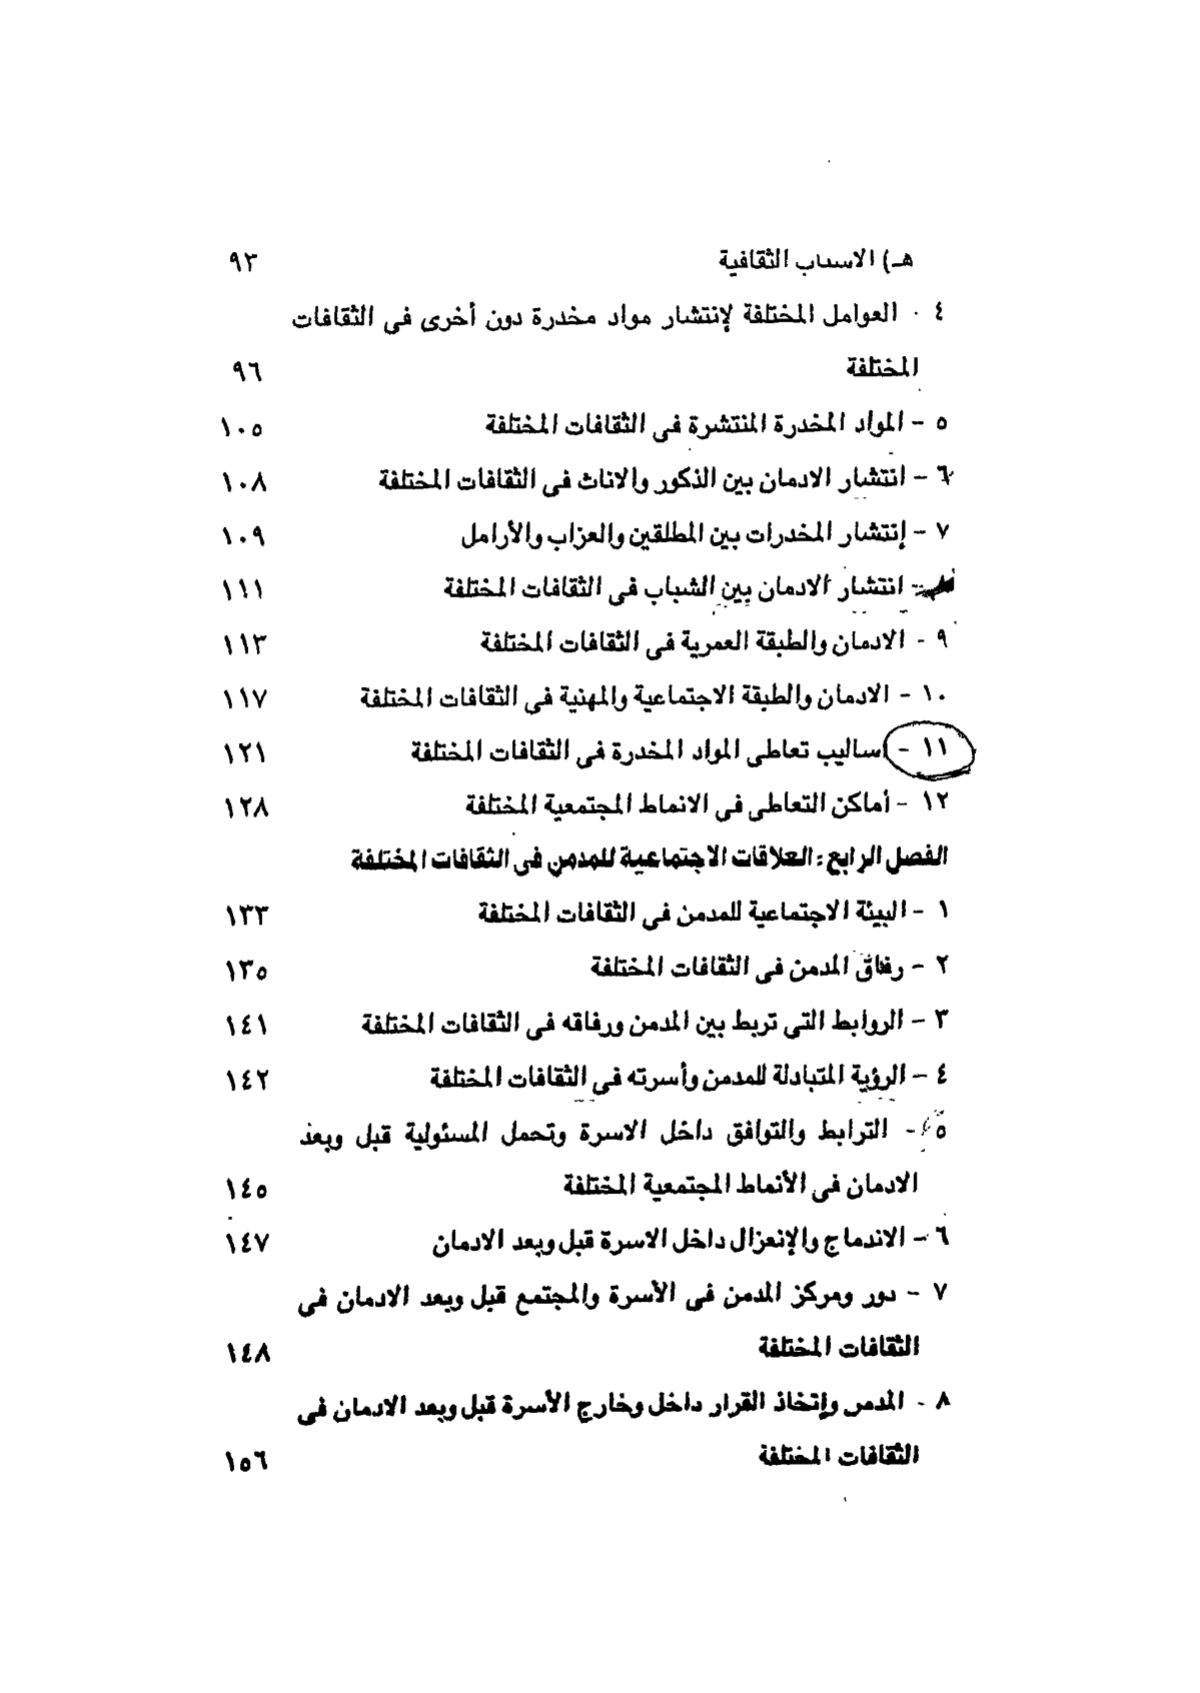 هـ) الاسباب الثقافية ٩٣
٤ - العوامل المختلفة لإنتشار مواد مخدرة دون أخرى فى الثقافات
المختلفة ٩٦
٥ - المواد المخدرة المنتشرة فى الثقافات المختلفة ١٠٥
٦ - انتشار الادمان بين الذكور والاناث فى الثقافات المختلفة ١٠٨
٧ - إنتشار المخدرات بين المطلقين والعزاب والأرامل ١٠٩
- انتشار الادمان بين الشباب فى الثقافات المختلفة ١١١
٩ - الادمان والطبقة العمرية فى الثقافات المختلفة ١١٣
١٠ - الادمان والطبقة الاجتماعية والمهنية فى الثقافات المختلفة ١١٧
١١ - اساليب تعاطى المواد المخدرة فى الثقافات المختلفة ١٢١
١٢ - أماكن التعاطى فى الانماط المجتمعية المختلفة ١٢٨
الفصل الرابع : العلاقات الاجتماعية للمدمن فى الثقافات المختلفة
١ - البيئة الاجتماعية للمدمن فى الثقافات المختلفة ١٣٣
٢ - رفاق المدمن فى الثقافات المختلفة ١٣٥
٣ - الروابط التى تربط بين المدمن ورفاقه فى الثقافات المختلفة ١٤١
٤ - الرؤية المتبادلة للمدمن وأسرته فى الثقافات المختلفة ١٤٢
٥ - الترابط والتوافق داخل الاسرة وتحمل المسئولية قبل وبعد
الادمان فى الأنماط المجتمعية المختلفة ١٤٥
٦ - الاندماج والإنعزال داخل الاسرة قبل وبعد الادمان ١٤٧
٧ - دور ومركز المدمن فى الأسرة والمجتمع قبل وبعد الادمان فى
الثقافات المختلفة ١٤٨
٨ - المدمن وإتخاذ القرار داخل وخارج الأسرة قبل وبعد الادمان فى
الثقافات المختلفة ١٥٦